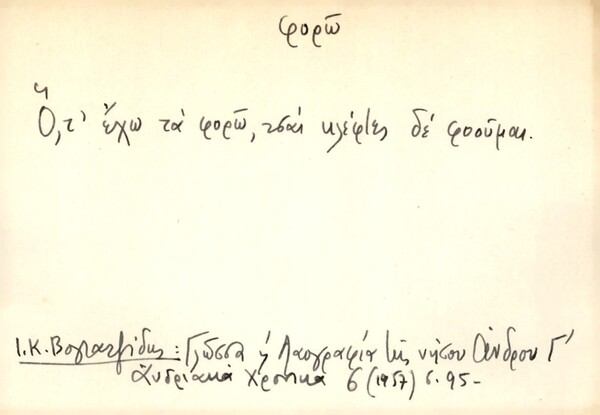 φορῶ
Ὅ,τ' ἔχω τὰ φορῶ, τσαὶ κλέφτες δὲ φοοῦμαι.
Ι.Κ. Βογιατζίδης: Γλῶσσα κ Λαογραφία τῆς νήσου Ἄνδρου Γ'
Ἀνδριακὰ Χρονικὰ 6 (1957) σ. 95-